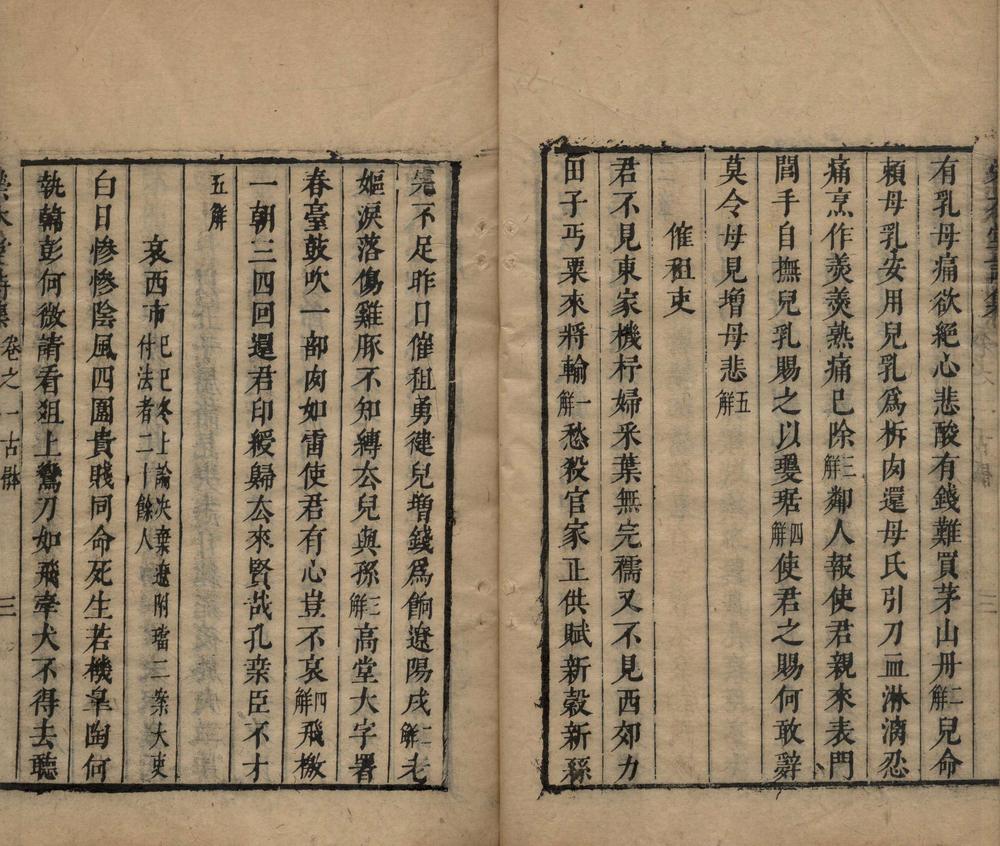 有乳母痛欲絕心悲酸有錢難買茅山毌二解兒命
賴母乳安用兒乳爲柝肉還母氏引刀血淋漓忍
痛烹作羮羮熟痛已除三解鄰人報使君親來表門
閭手自撫兒乳賜之以瓊琚四解使君之賜何敢辭
莫令母見增母悲五解
催租吏
君不見東家機杼婦采葉無完襦又不見西郊力
田子丐粟來將輸一解愁殺官家正供賦新穀新絲
完不足昨日催租勇健兒增錢爲餉遼陽戍二解老
嫗淚落傷雞豚不知縛去兒與孫三解高堂大字署
春臺鼓吹一部肉如雷使君有心豈不哀四解飛檄
一朝三四回還君印綬歸去來賢哉孔棐臣不才
五解
哀西市己巳冬上論決棄遼附璫二案大吏
什法者二十餘人
白日慘慘陰風四圍貴賤同命死生若機皐陶何
執韓彭何微請看俎上鸞刀如飛牽犬不得去聽
卷之一 古體 三